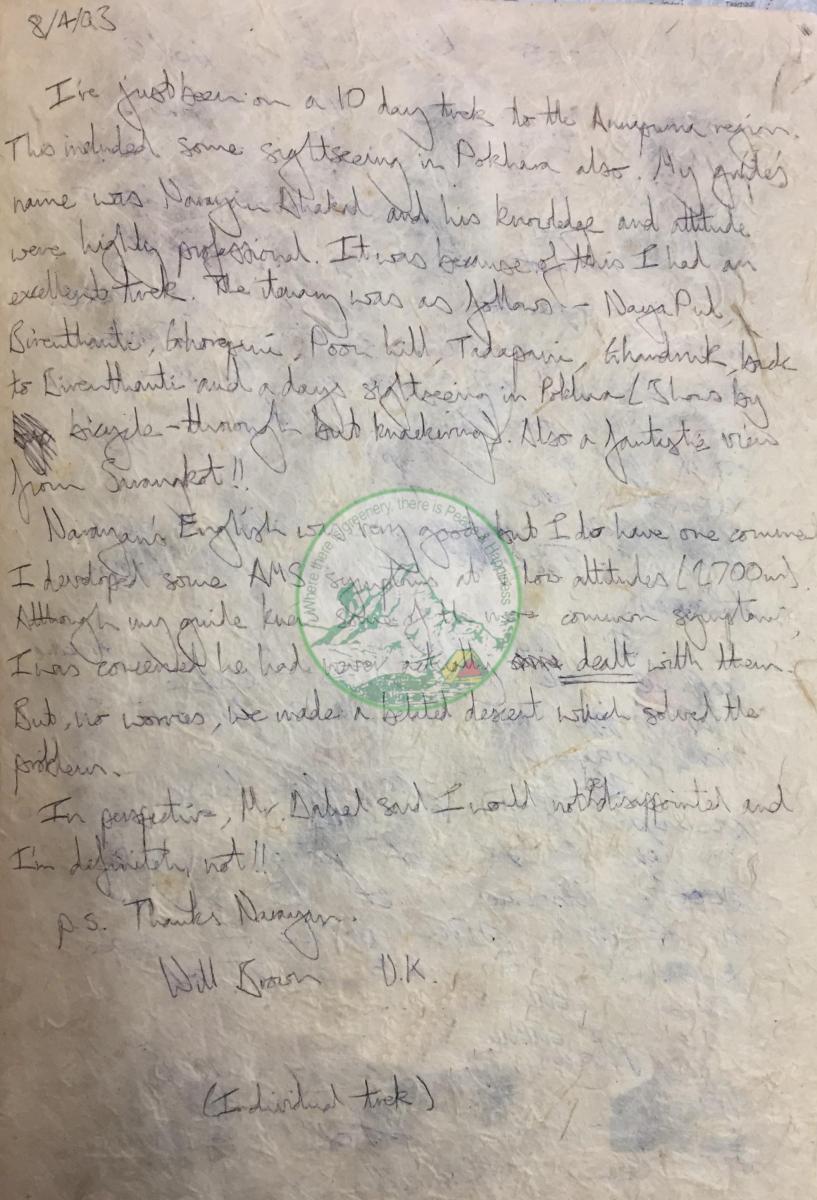 8/4/03
I've just been on a 10 day trek to the Annapurna region.
This included some sightseeing in Pokhara also. My guide's
name was Narayan Dhakal and his knowledge and attitude
were highly professional. It was because of this I had an
excellent trek. The itenary was as follows - Naya Pul,
Birenthanti, Ghorepani, Poon hill, Tadapani, Ghandruk, back
to Birenthanti and a days sightseeing in Pokhara (5 hours by
bicycle - thorough but knackering). Also a fantastic view
from Sarangkot!!
Narayan's English was very good but I do have one comment
I developed some AMS symptoms at low altitudes (2,700m).
Although my guide knew some of the more common symptoms,
I was concerned he had never actually dealt with them.
But, no worries, we made a belated descent which solved the
problem.
In perspective, Mr. Dahal said I would not be disappointed and
I'm definitely not!!
p.s. Thanks Narayan.
Will Brown U.K.
(Individual trek)
Where there is greenery, there is Peace & Happiness